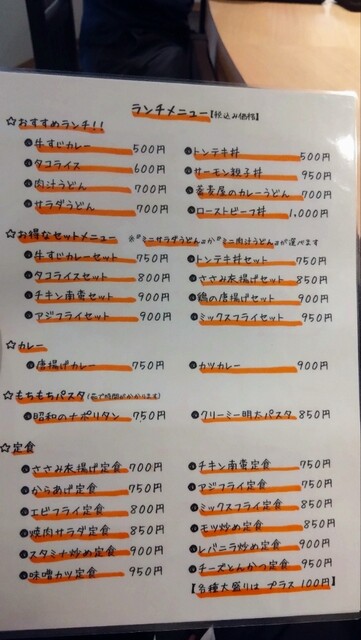 ランチメニュー【税込み価格】
☆おすすめランチ!!
牛すじカレー 500円
タコライス 600円
肉汁うどん 700円
サラダうどん 700円
トンテキ丼 500円
サーモン親子丼 950円
蕎麦屋のカレーうどん 700円
ローストビーフ丼 1,000円
☆お得なセットメニュー ※"ミニサラダうどん"か"ミニ肉汁うどん"が選べます
牛すじカレーセット 750円
タコライスセット 800円
チキン南蛮セット 900円
アジフライセット 900円
トンテキ丼セット 750円
ささみ水揚げセット 850円
鶏の唐揚げセット 900円
ミックスフライセット 950円
☆カレー
唐揚げカレー 750円
カツカレー 900円
☆もちもちパスタ
昭和のナポリタン 750円
クリーミー明太パスタ 850円
☆定食
ささみ水揚げ定食 700円
からあげ定食 750円
エビフライ定食 800円
焼肉サラダ定食 850円
スタミナ炒め定食 900円
味噌カツ定食 950円
チキン南蛮定食 750円
アジフライ定食 750円
ミックスフライ定食 850円
モツ炒め定食 850円
レバニラ炒め定食 900円
チーズとんかつ定食 950円
【各種大盛りは プラス 100円】